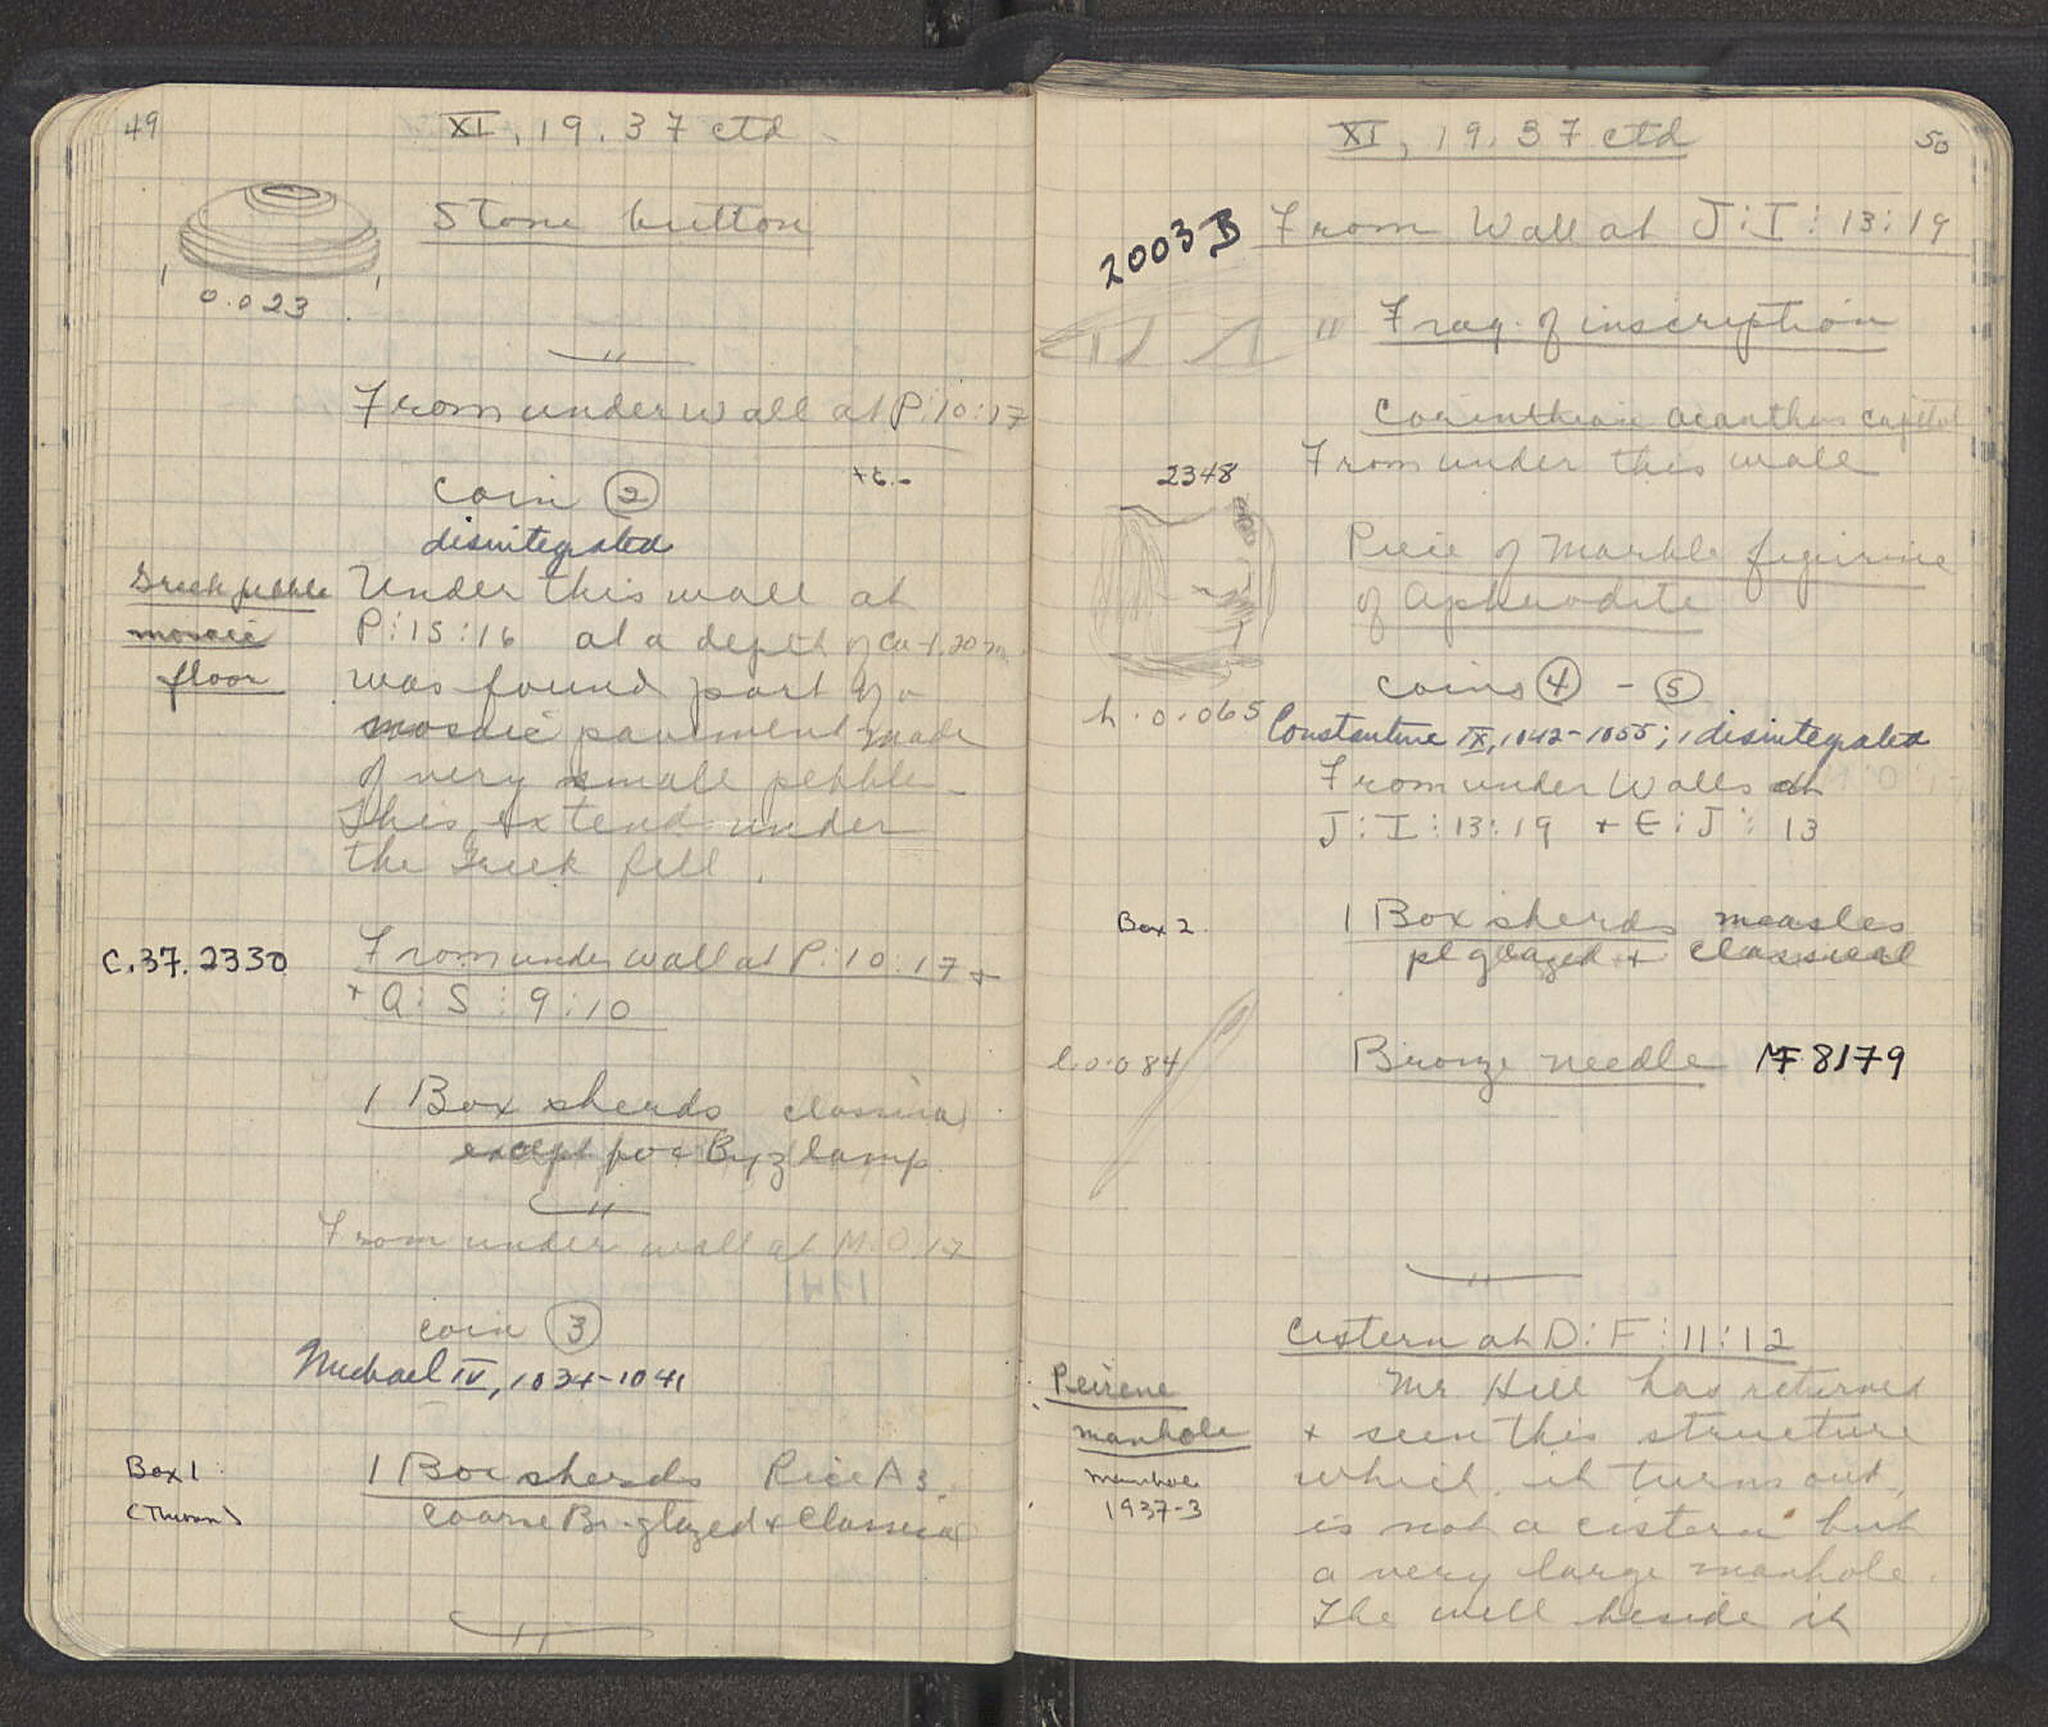 49
XI, 19. 37 ctd
Stone button
0.023
"
From under wall at P:10:17
coin ②
disintegrated
Greek pebble
mosaic
floor
Under this wall at
P:15:16 at a depth of ca -1.20 m
was found part of a
mosaic pavement made
of very small pebbles
This extends under
the Greek fill.
C.37.2330
From under wall at P:10:17 +
+ Q:S:9:10
1 Box sherds classical
except for Byz lamp
"
From under wall at M:O:17
coin ③
Michael IV, 1034-1041
Box 1
1 Box sherds Rice A3,
coarse Br-glazed + Classical
"
XI, 19. 37 ctd
50
2003 B
From Wall at J:I:13:19
" Frag. of inscription
Corinthian acanthus capital
From under this wall
2348
Piece of Marble figurine
of Aphrodite
h. 0.065
coins ④ - ⑤
Constantine IX, 1042-1055; 1 disintegrated
From under Walls at
J:I:13:19 + E:J:13
Box 2
1 Box sherds measles
pl glazed + classical
l. 0.084
Bronze needle MF 8179
"
Cistern at D:F:11:12
Peirene
manhole
Manhole
1937-3
Mr Hill has returned
+ seen this structure
which, it turns out,
is not a cistern but
a very large manhole.
The well beside it